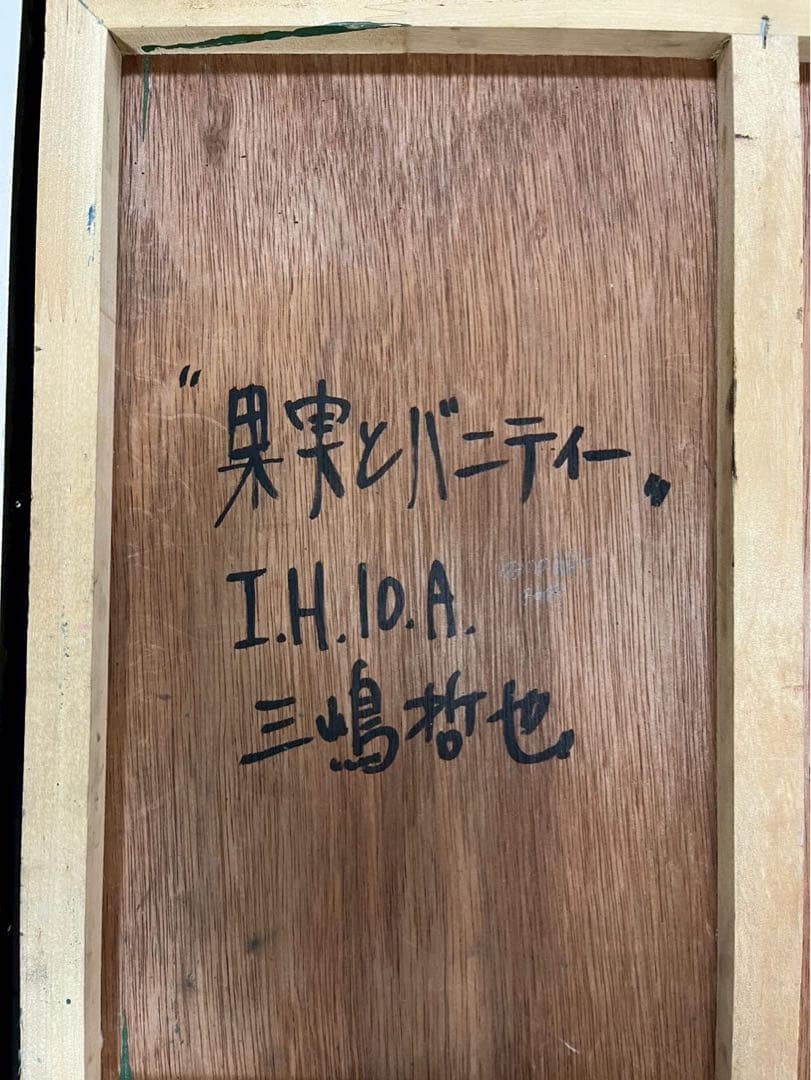 “果実とバニティー„
I.H.10.A.
三嶋哲也